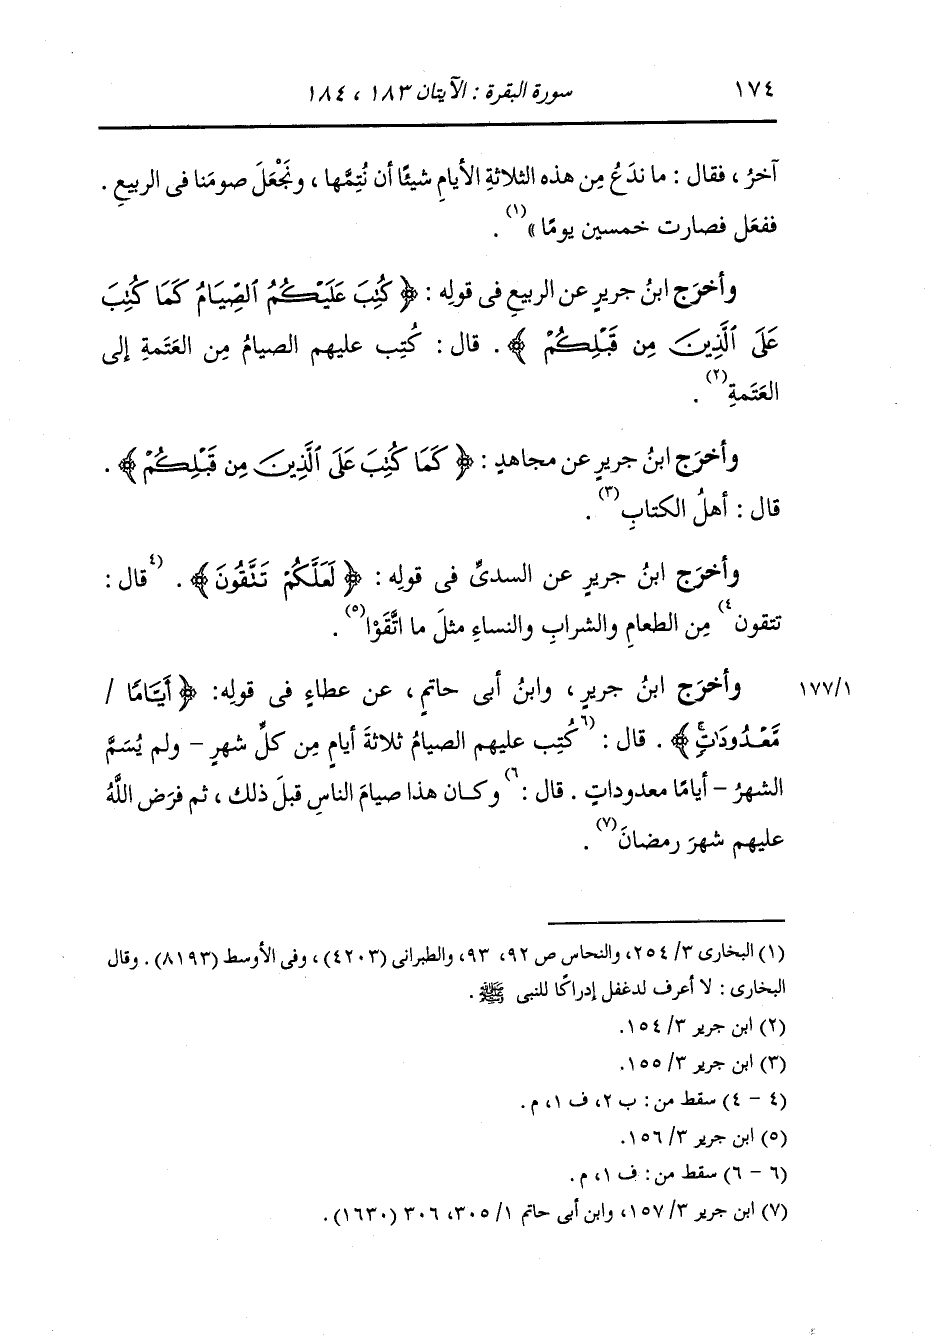 ١٧٤ سورة البقرة : الآيتان ١٨٣ ، ١٨٤
آخرُ ، فقال : ما ندَعُ مِن هذه الثلاثةِ الأيامِ شيئًا أن نُتِمَّها ، ونَجْعَلَ صومَنا فى الربيعِ .
ففعَل فصارت خمسين يومًا »(١) .
وأخرَج ابنُ جريرٍ عن الربيعِ فى قولِه : ﴿ كُتِبَ عَلَيْكُمُ ٱلصِّيَامُ كَمَا كُتِبَ
عَلَى ٱلَّذِينَ مِن قَبْلِكُمْ ﴾ . قال : كُتِب عليهم الصيامُ مِن العَتَمةِ إلى
العَتَمةِ(٢) .
وأخرَج ابنُ جريرٍ عن مجاهدٍ : ﴿ كَمَا كُتِبَ عَلَى ٱلَّذِينَ مِن قَبْلِكُمْ ﴾ .
قال : أهلُ الكتابِ(٣) .
وأخرَج ابنُ جريرٍ عن السدىِّ فى قولِه : ﴿ لَعَلَّكُمْ تَتَّقُونَ ﴾ . (٤قال :
تتقون٤) مِن الطعامِ والشرابِ والنساءِ مثلَ ما اتَّقَوْا(٥) .
وأخرَج ابنُ جريرٍ ، وابنُ أبى حاتمٍ ، عن عطاءٍ فى قولِه : ﴿ أَيَّامًا / ١٧٧/١
مَّعْدُودَٰتٍ ﴾ . قال : (٦كُتِب عليهم الصيامُ ثلاثةَ أيامٍ مِن كلِّ شهرٍ - ولم يُسَمَّ
الشهرُ - أيامًا معدوداتٍ . قال :٦) وكان هذا صيامَ الناسِ قبلَ ذلك ، ثم فرَض اللَّهُ
عليهم شهرَ رمضانَ(٧) .
(١) البخارى ٣/ ٢٥٤، والنحاس ص ٩٢، ٩٣، والطبرانى (٤٢٠٣) ، وفى الأوسط (٨١٩٣) . وقال
البخارى : لا أعرف لدغفل إدراكًا للنبى ﷺ .
(٢) ابن جرير ٣/ ١٥٤.
(٣) ابن جرير ٣/ ١٥٥.
(٤ - ٤) سقط من : ب ٢، ف ١، م .
(٥) ابن جرير ٣/ ١٥٦.
(٦ - ٦) سقط من : ف ١، م .
(٧) ابن جرير ٣/ ١٥٧، وابن أبى حاتم ١/ ٣٠٥، ٣٠٦ (١٦٣٠) .